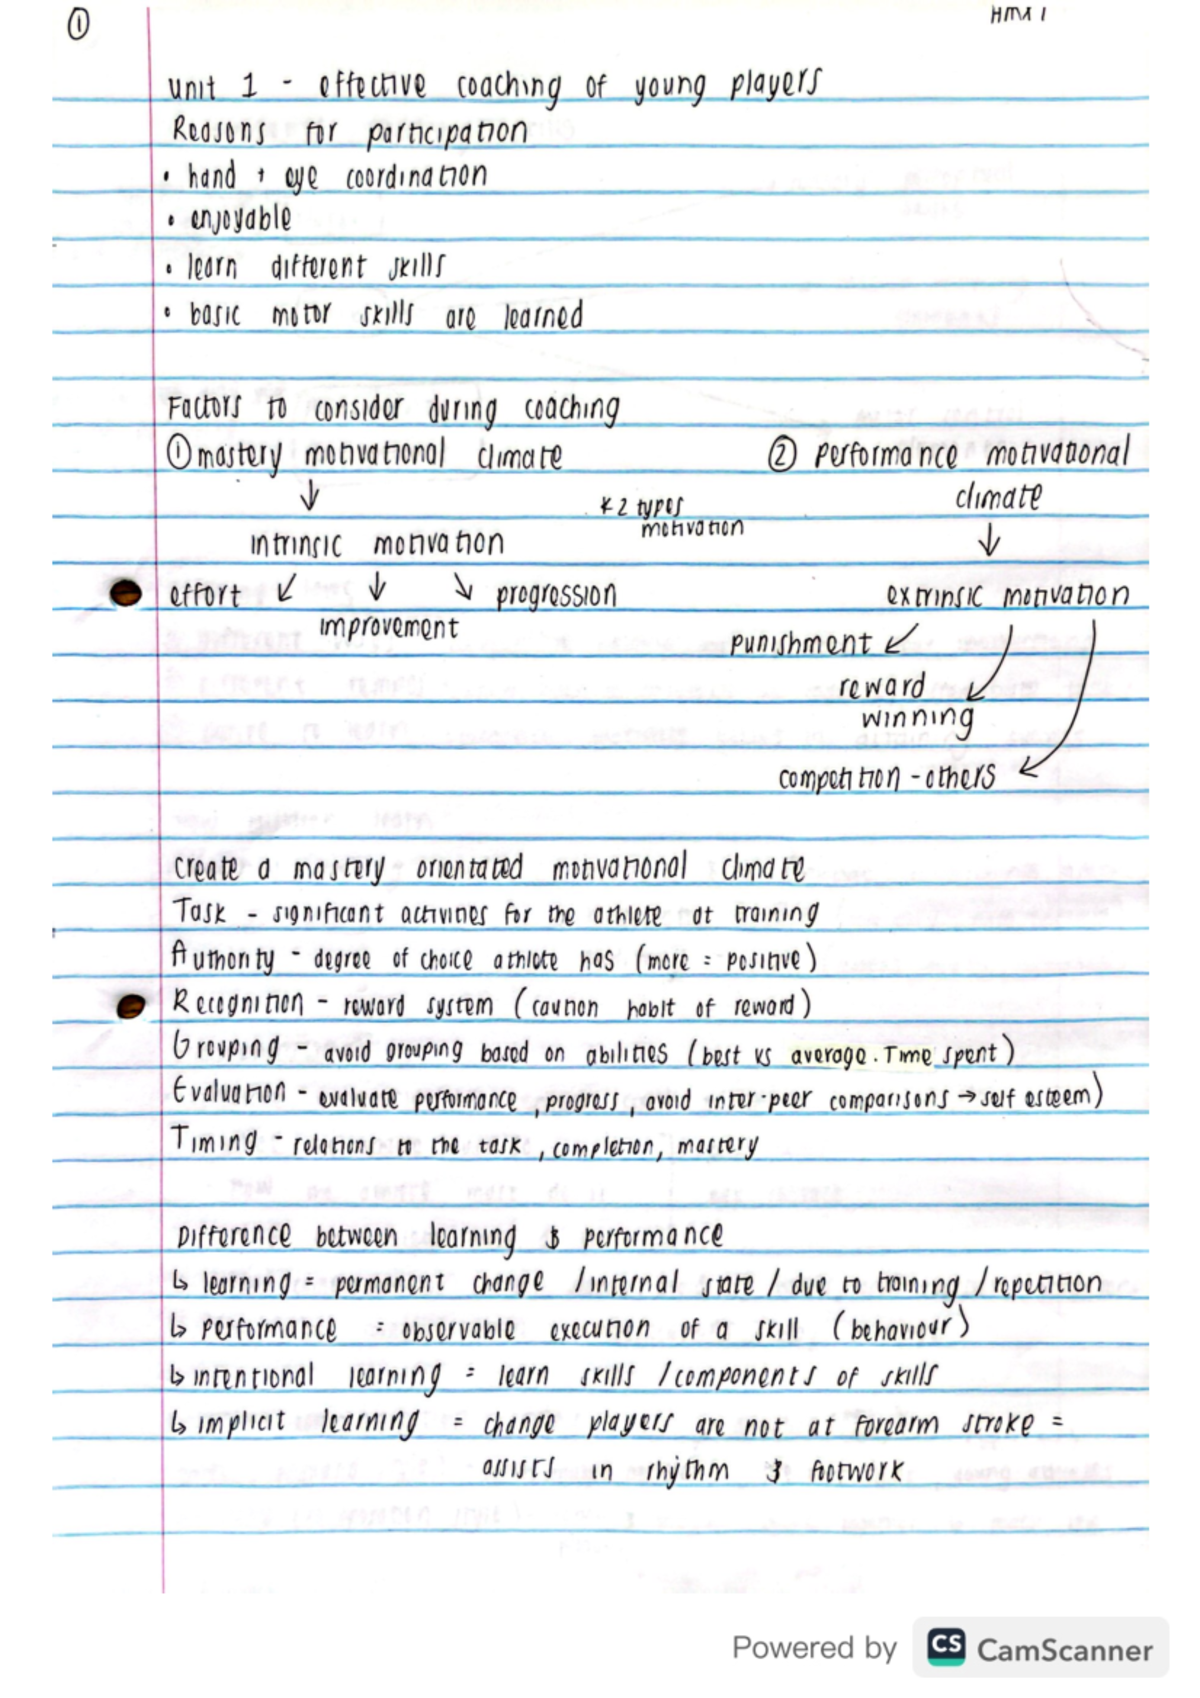 ①
Unit 1 - effective coaching of young players
Reasons for participation
• hand + eye coordination
• enjoyable
• learn different skills
• basic motor skills are learned
Factors to consider during coaching
① mastery motivational climate
② Performance motivational climate
* 2 types motivation
↓
intrinsic motivation
↓
effort ↙ ↓ ↘ progression
improvement
extrinsic motivation
punishment ↙
reward
winning
competition - others
Create a mastery orientated motivational climate
Task - significant activities for the athlete at training
Authority - degree of choice athlete has (more = positive)
Recognition - reward system (caution habit of reward)
Grouping - avoid grouping based on abilities (best vs average. Time spent)
Evaluation - evaluate performance, progress, avoid inter-peer comparisons → self esteem)
Timing - relations to the task, completion, mastery
Difference between learning & performance
↳ learning = permanent change / internal state / due to training / repetition
↳ performance = observable execution of a skill (behaviour)
↳ intentional learning = learn skills / components of skills
↳ implicit learning = change players are not at forearm stroke =
assists in rhythm & footwork
Powered by CS CamScanner